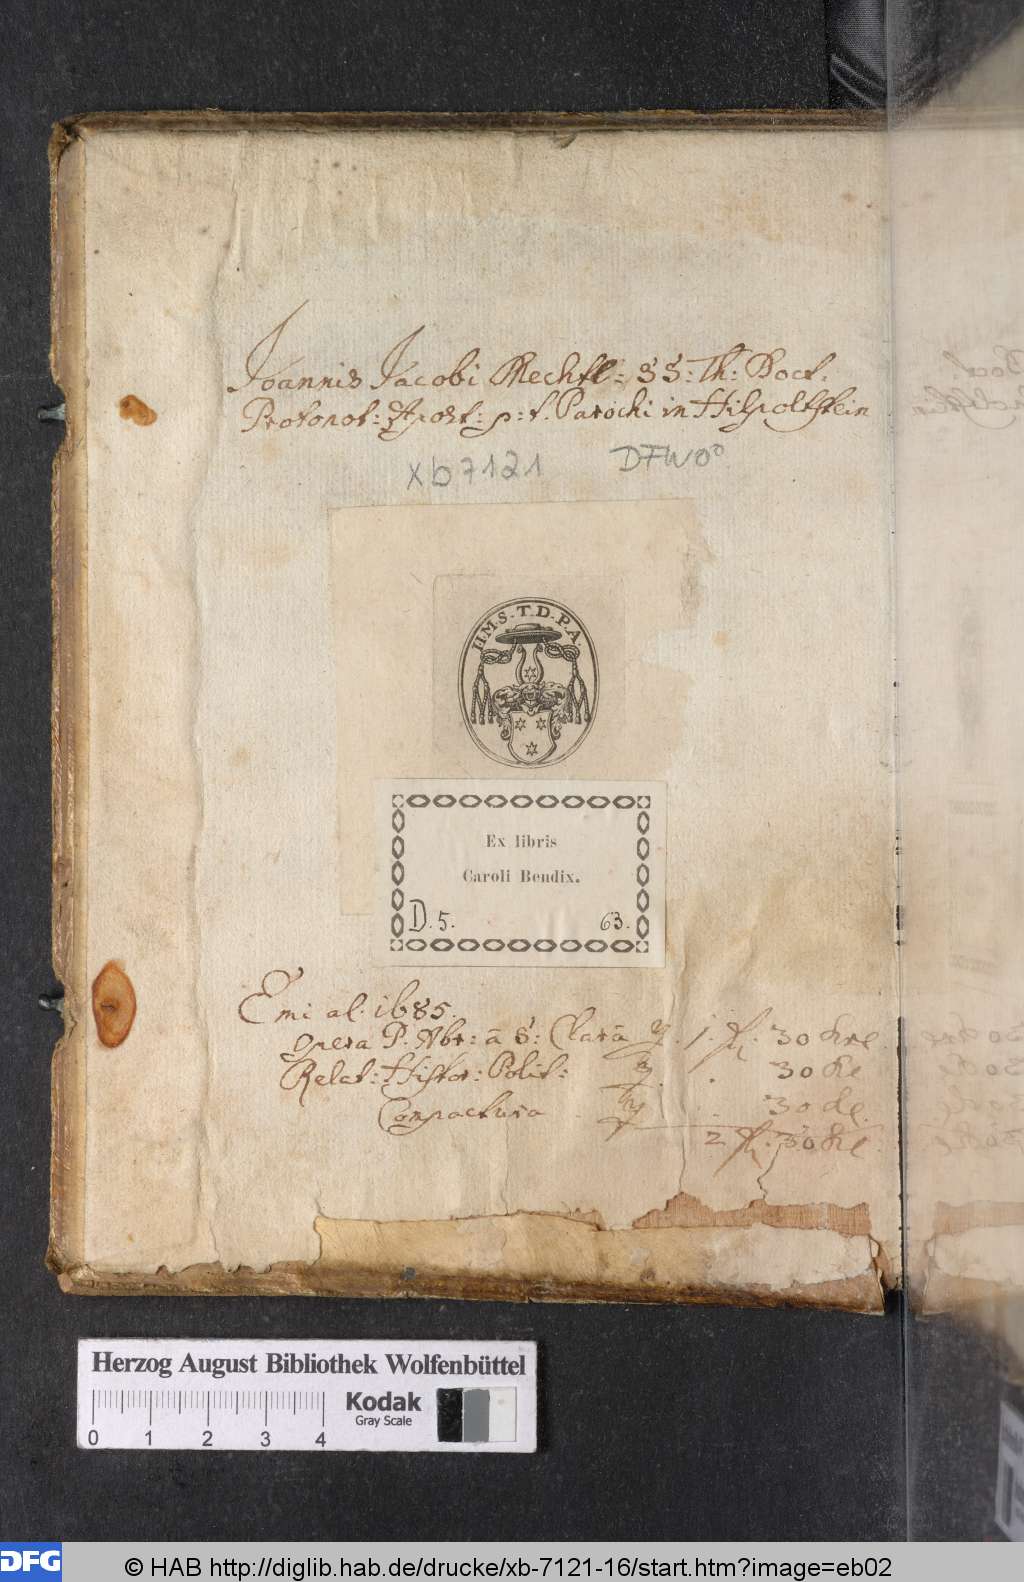 Joannis Jacobi Mechtl: SS: Th: Doct:
Protonot: Apost: p: t. Parochi in Hilpoltstein
xb7121 DFW00
I.I.M.S.T.D.P.A.
Ex libris
Caroli Bendix.
D. 5. 63.
Emi aō. 1685.
opera P. Abr: à S: Clarā 1. fl. 30 kre
Relat: Histor: Polit: 30 kre
Compactura 30 kre.
2 fl: 30 kre
Herzog August Bibliothek Wolfenbüttel
Kodak
Gray Scale
0 1 2 3 4
DFG © HAB http://diglib.hab.de/drucke/xb-7121-16/start.htm?image=eb02